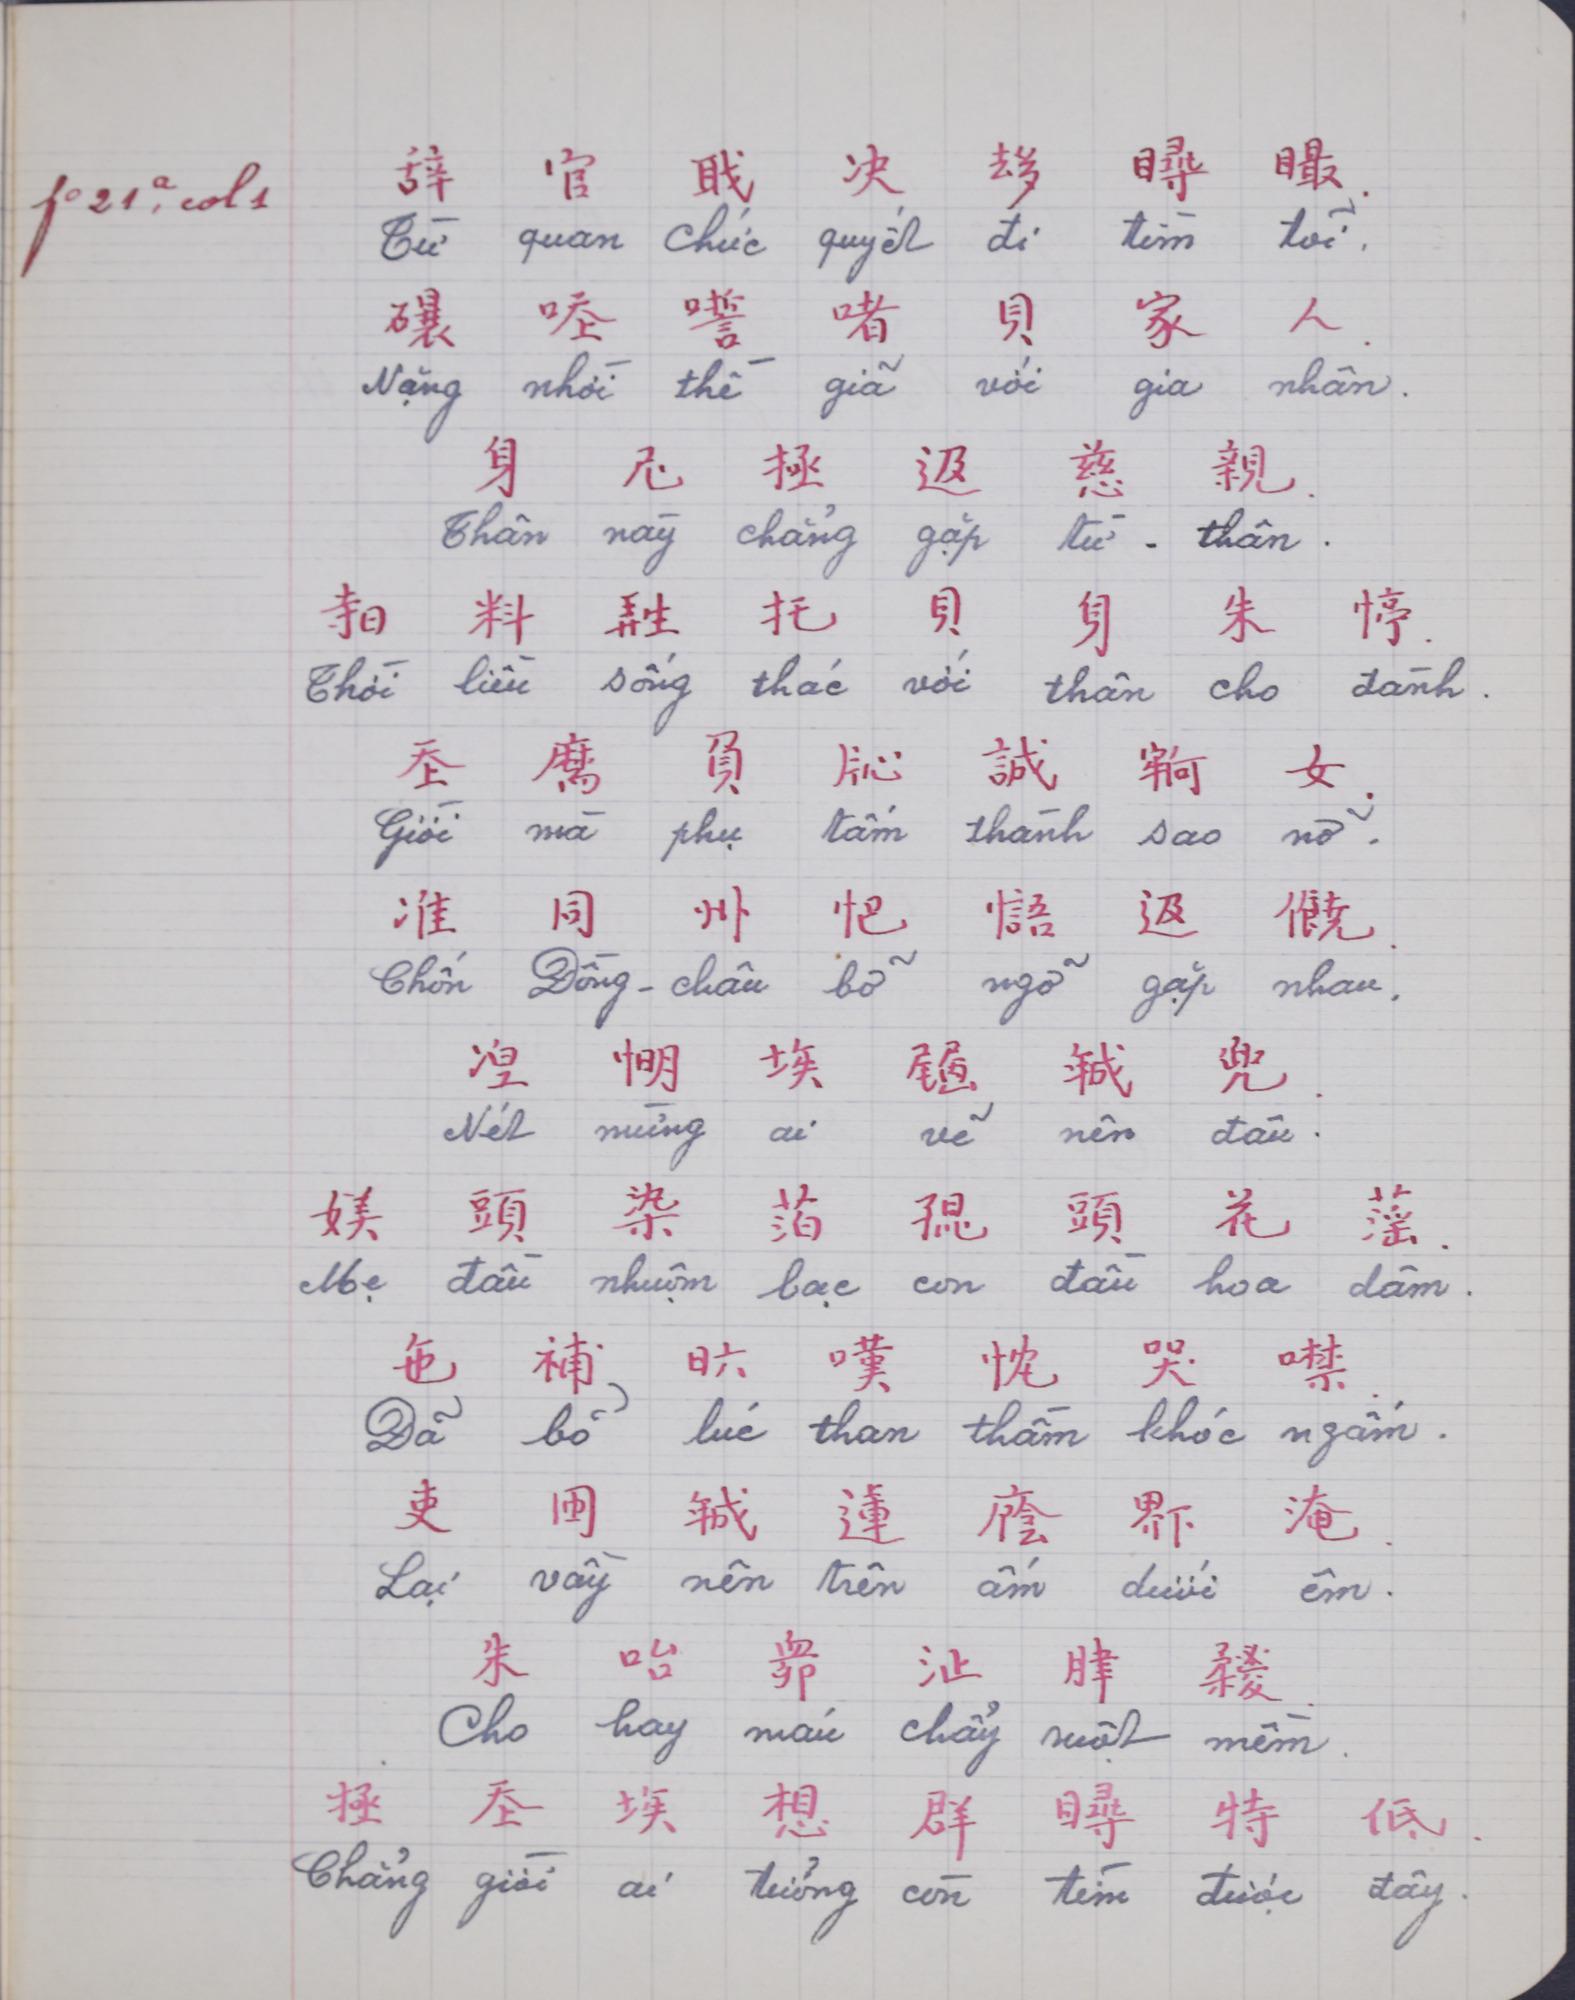 fº 21ª, col 1
辞 官 戝 决 𠫾 𥊀 𥋴.
Từ quan chức quyết đi tìm tõi.
𥗾 𠳒 𠽖 啫 貝 家 人.
Nặng nhời thề giã với gia nhân.
身 尼 拯 返 慈 親.
Thân này chẳng gặp từ - thân.
料 托 貝 身 朱 停.
Thời liều sống thác với thân cho đành.
𡗶 麿 負 誠 女.
Giời mà phụ tấm thành sao nỡ.
准 同 州 悟 返 僥.
Chốn Đồng - châu bỡ ngỡ gặp nhau.
湼 𢜏 埃 𡳒 𢧚 兜.
Nét mừng ai vẽ nên đâu.
媄 頭 染 萡 𡥵 頭 花 𦹵.
Mẹ đầu nhuộm bạc con đầu hoa dâm.
㐌 補 𣅶 嘆 忱 哭 噤.
Đã bổ lúc than thầm khóc ngấm.
吏 𢧚 蓮 廕 𤲂 淹.
Lại vầy nên trên ấm dưới êm.
朱 咍 沚 𦛌.
Cho hay máu chẩy ruột mềm.
拯 𡗶 埃 想 群 𥊀 特 低.
Chẳng giời ai tưởng còn tìm được đây.